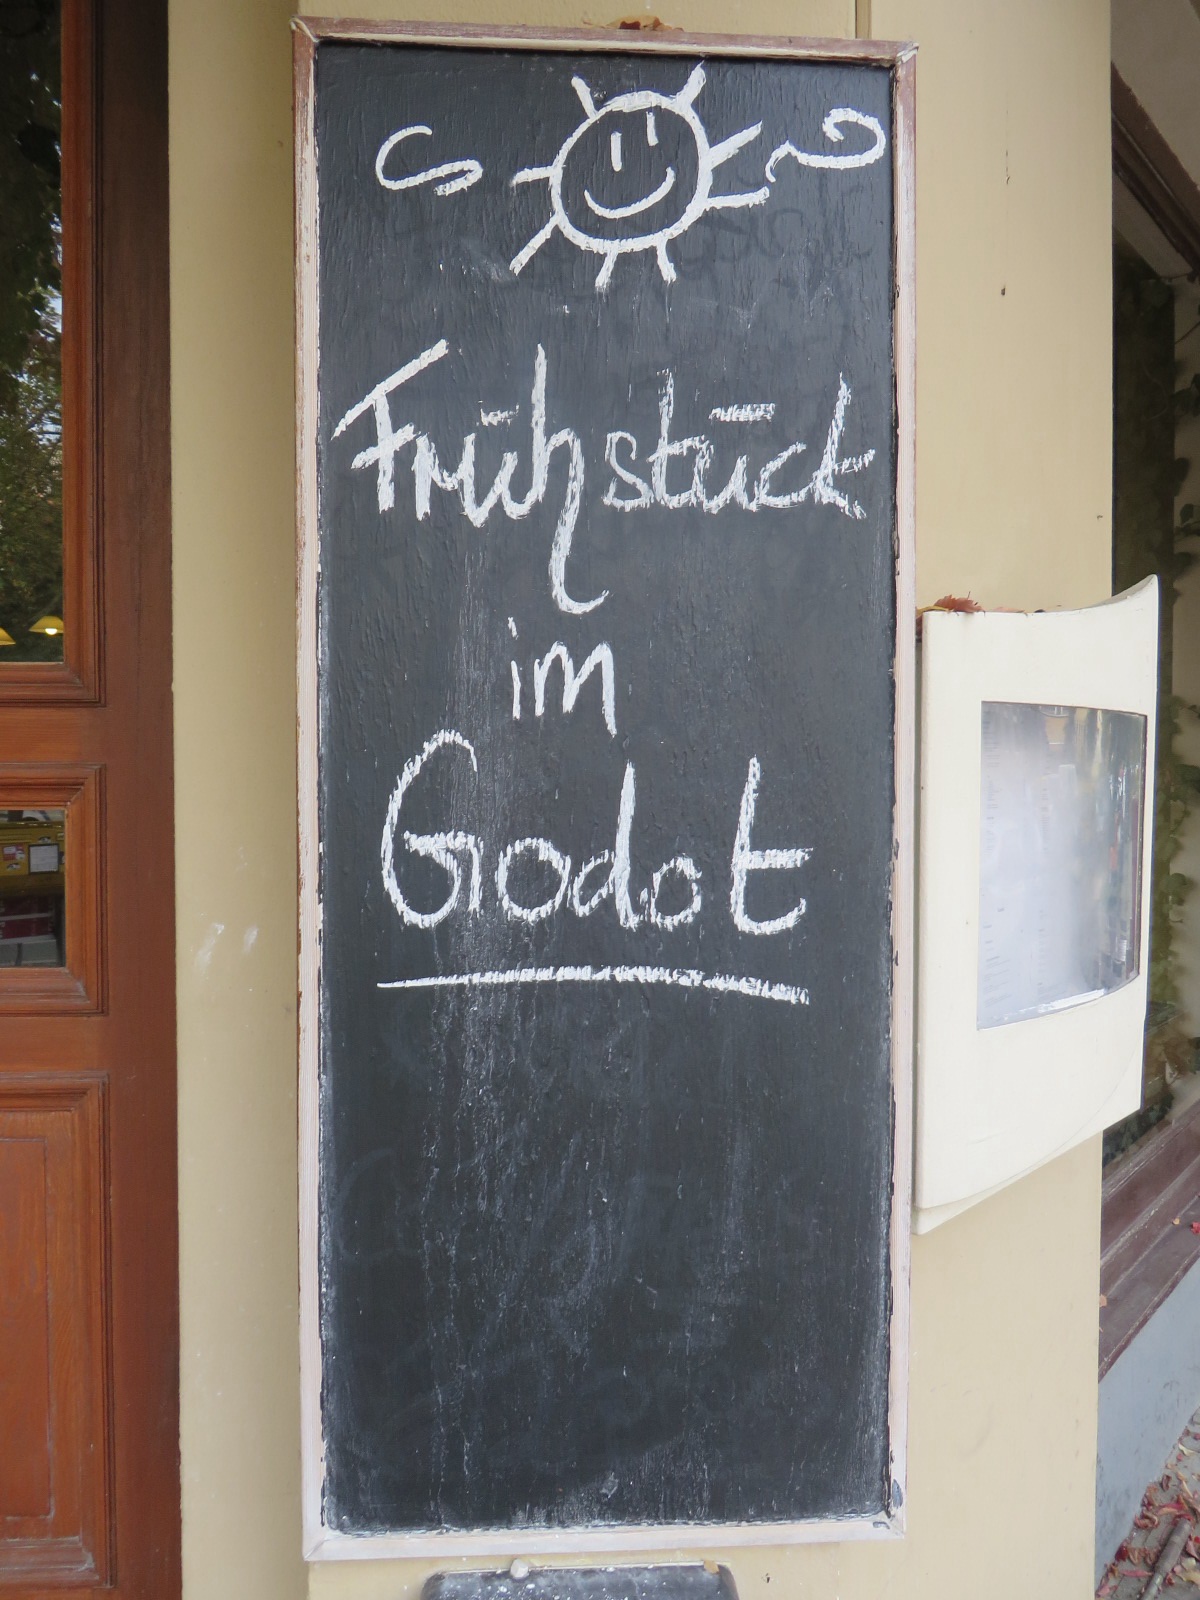 Frühstück
im
Godot